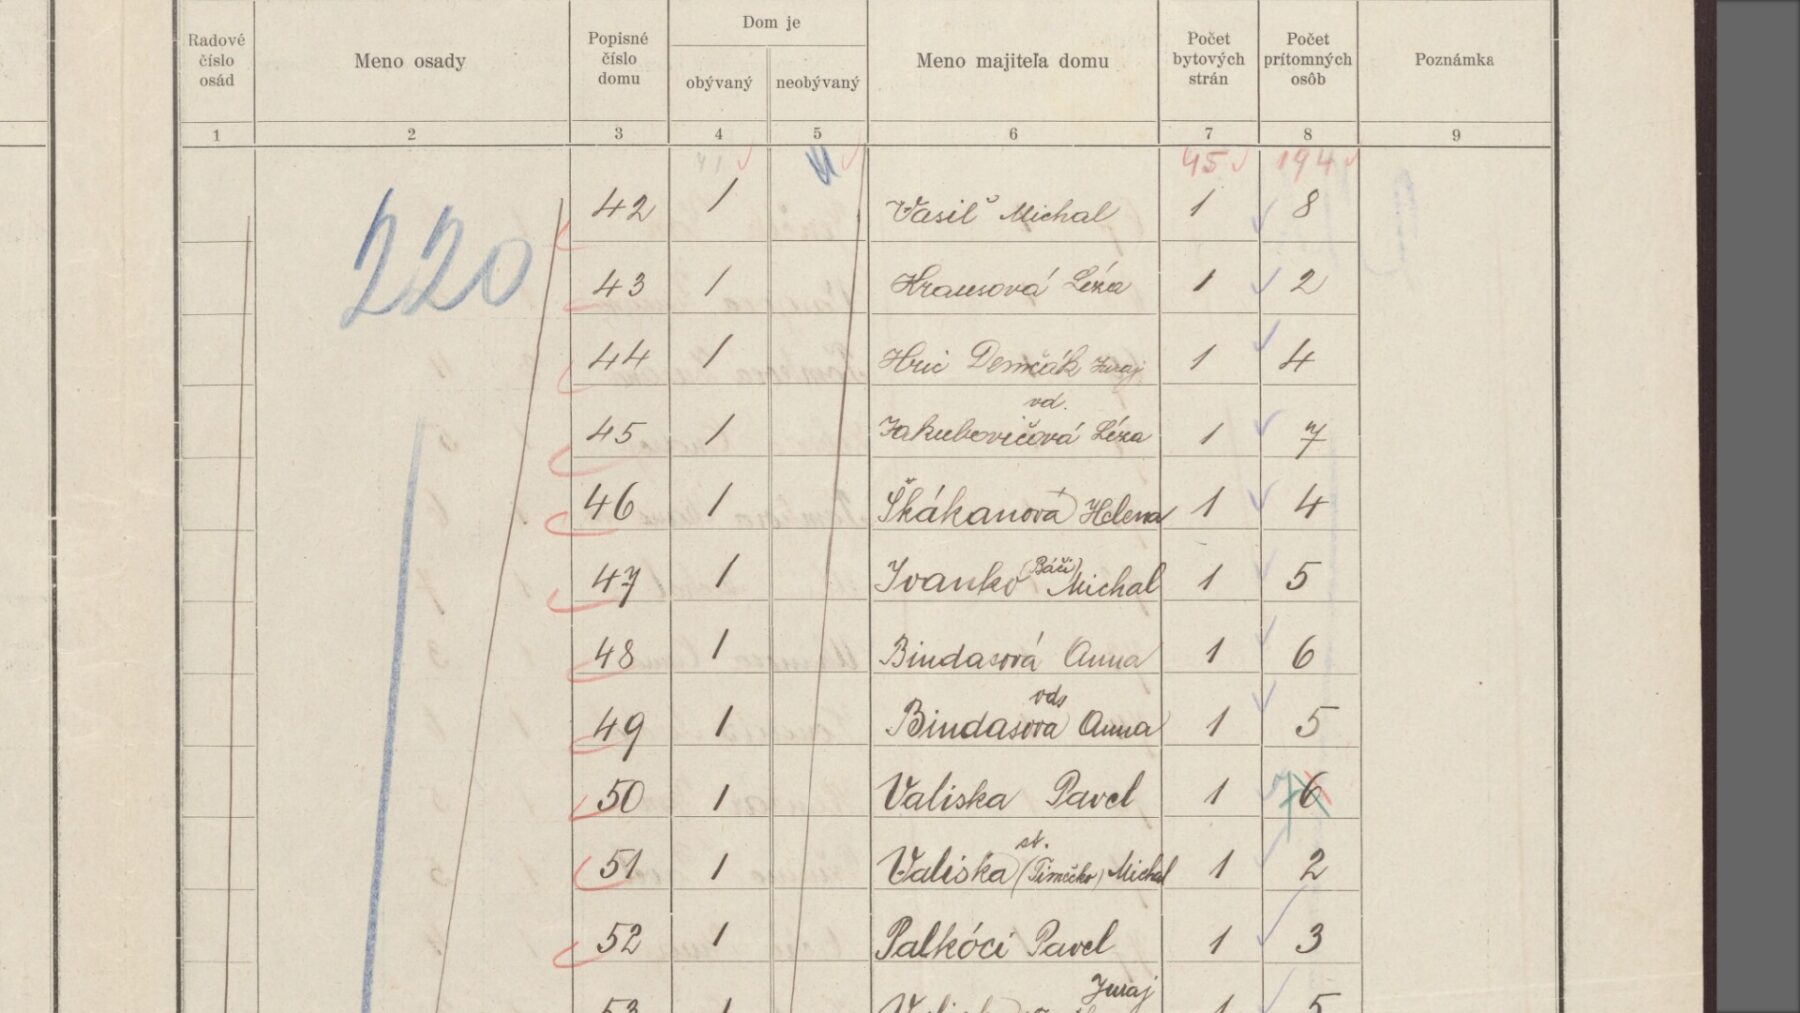 Radové číslo osád
Meno osady
Popisné číslo domu
Dom je
obývaný
neobývaný
Meno majiteľa domu
Počet bytových strán
Počet prítomných osôb
Poznámka
1 2 3 4 5 6 7 8 9
45 194
220
42 1 Vasiľ Michal 1 8
43 1 Krausová Léza 1 2
44 1 Hric Demčák Juraj 1 4
vd.
45 1 Jakubovičová Léza 1 7
46 1 Škákanová Helena 1 4
47 1 Ivanko (Báči) Michal 1 5
48 1 Bindasová Anna 1 6
49 1 Bindasová Anna 1 5
50 1 Valiska Pavel 1 7 6
st.
51 1 Valiska (Timečko) Michal 1 2
52 1 Palkóci Pavel 1 3
Juraj
53 1 1 5